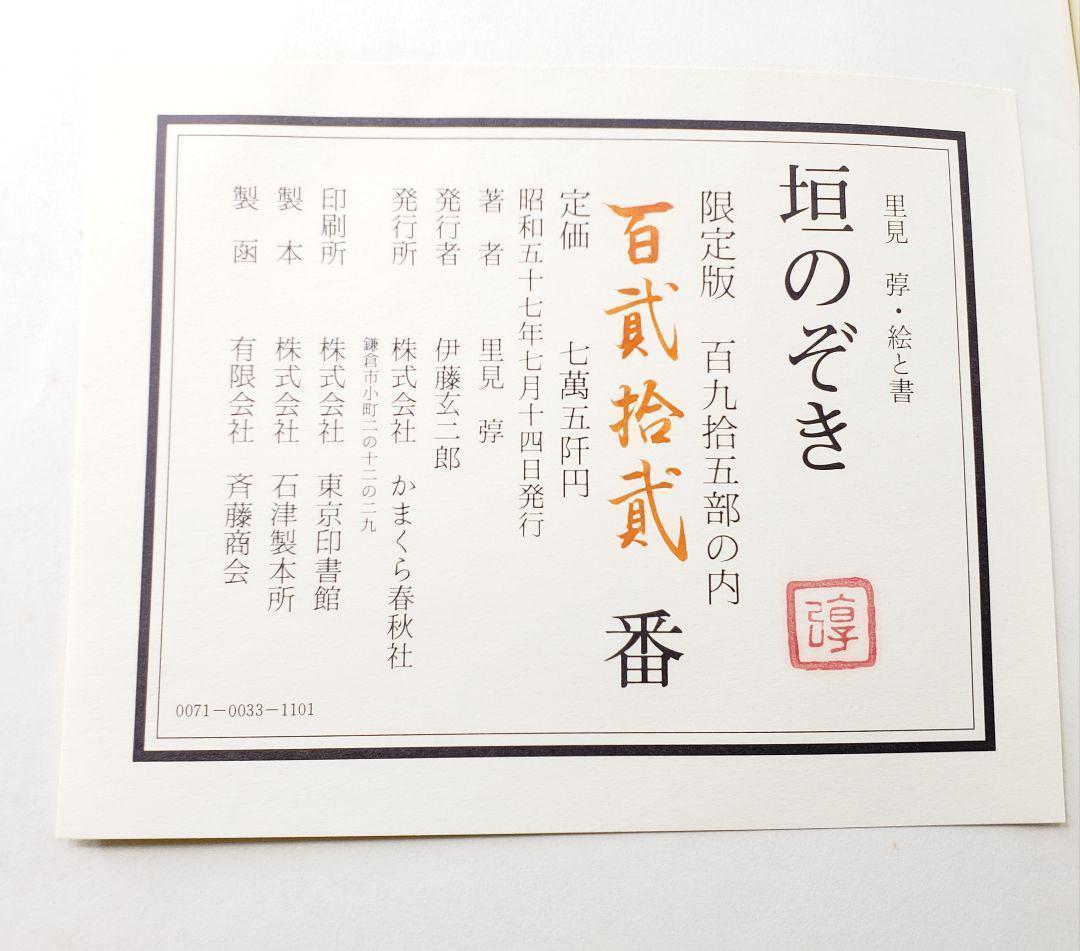 里見　弴・絵と書
垣のぞき
弴
限定版　百九拾五部の内
百貳拾貳番
定価　七萬五阡円
昭和五十七年七月十四日発行
著者　里見　弴
発行者　伊藤玄二郎
発行所　株式会社　かまくら春秋社
鎌倉市小町二の十二の二九
印刷所　株式会社　東京印書館
製本　株式会社　石津製本所
製函　有限会社　斉藤商会
0071－0033－1101